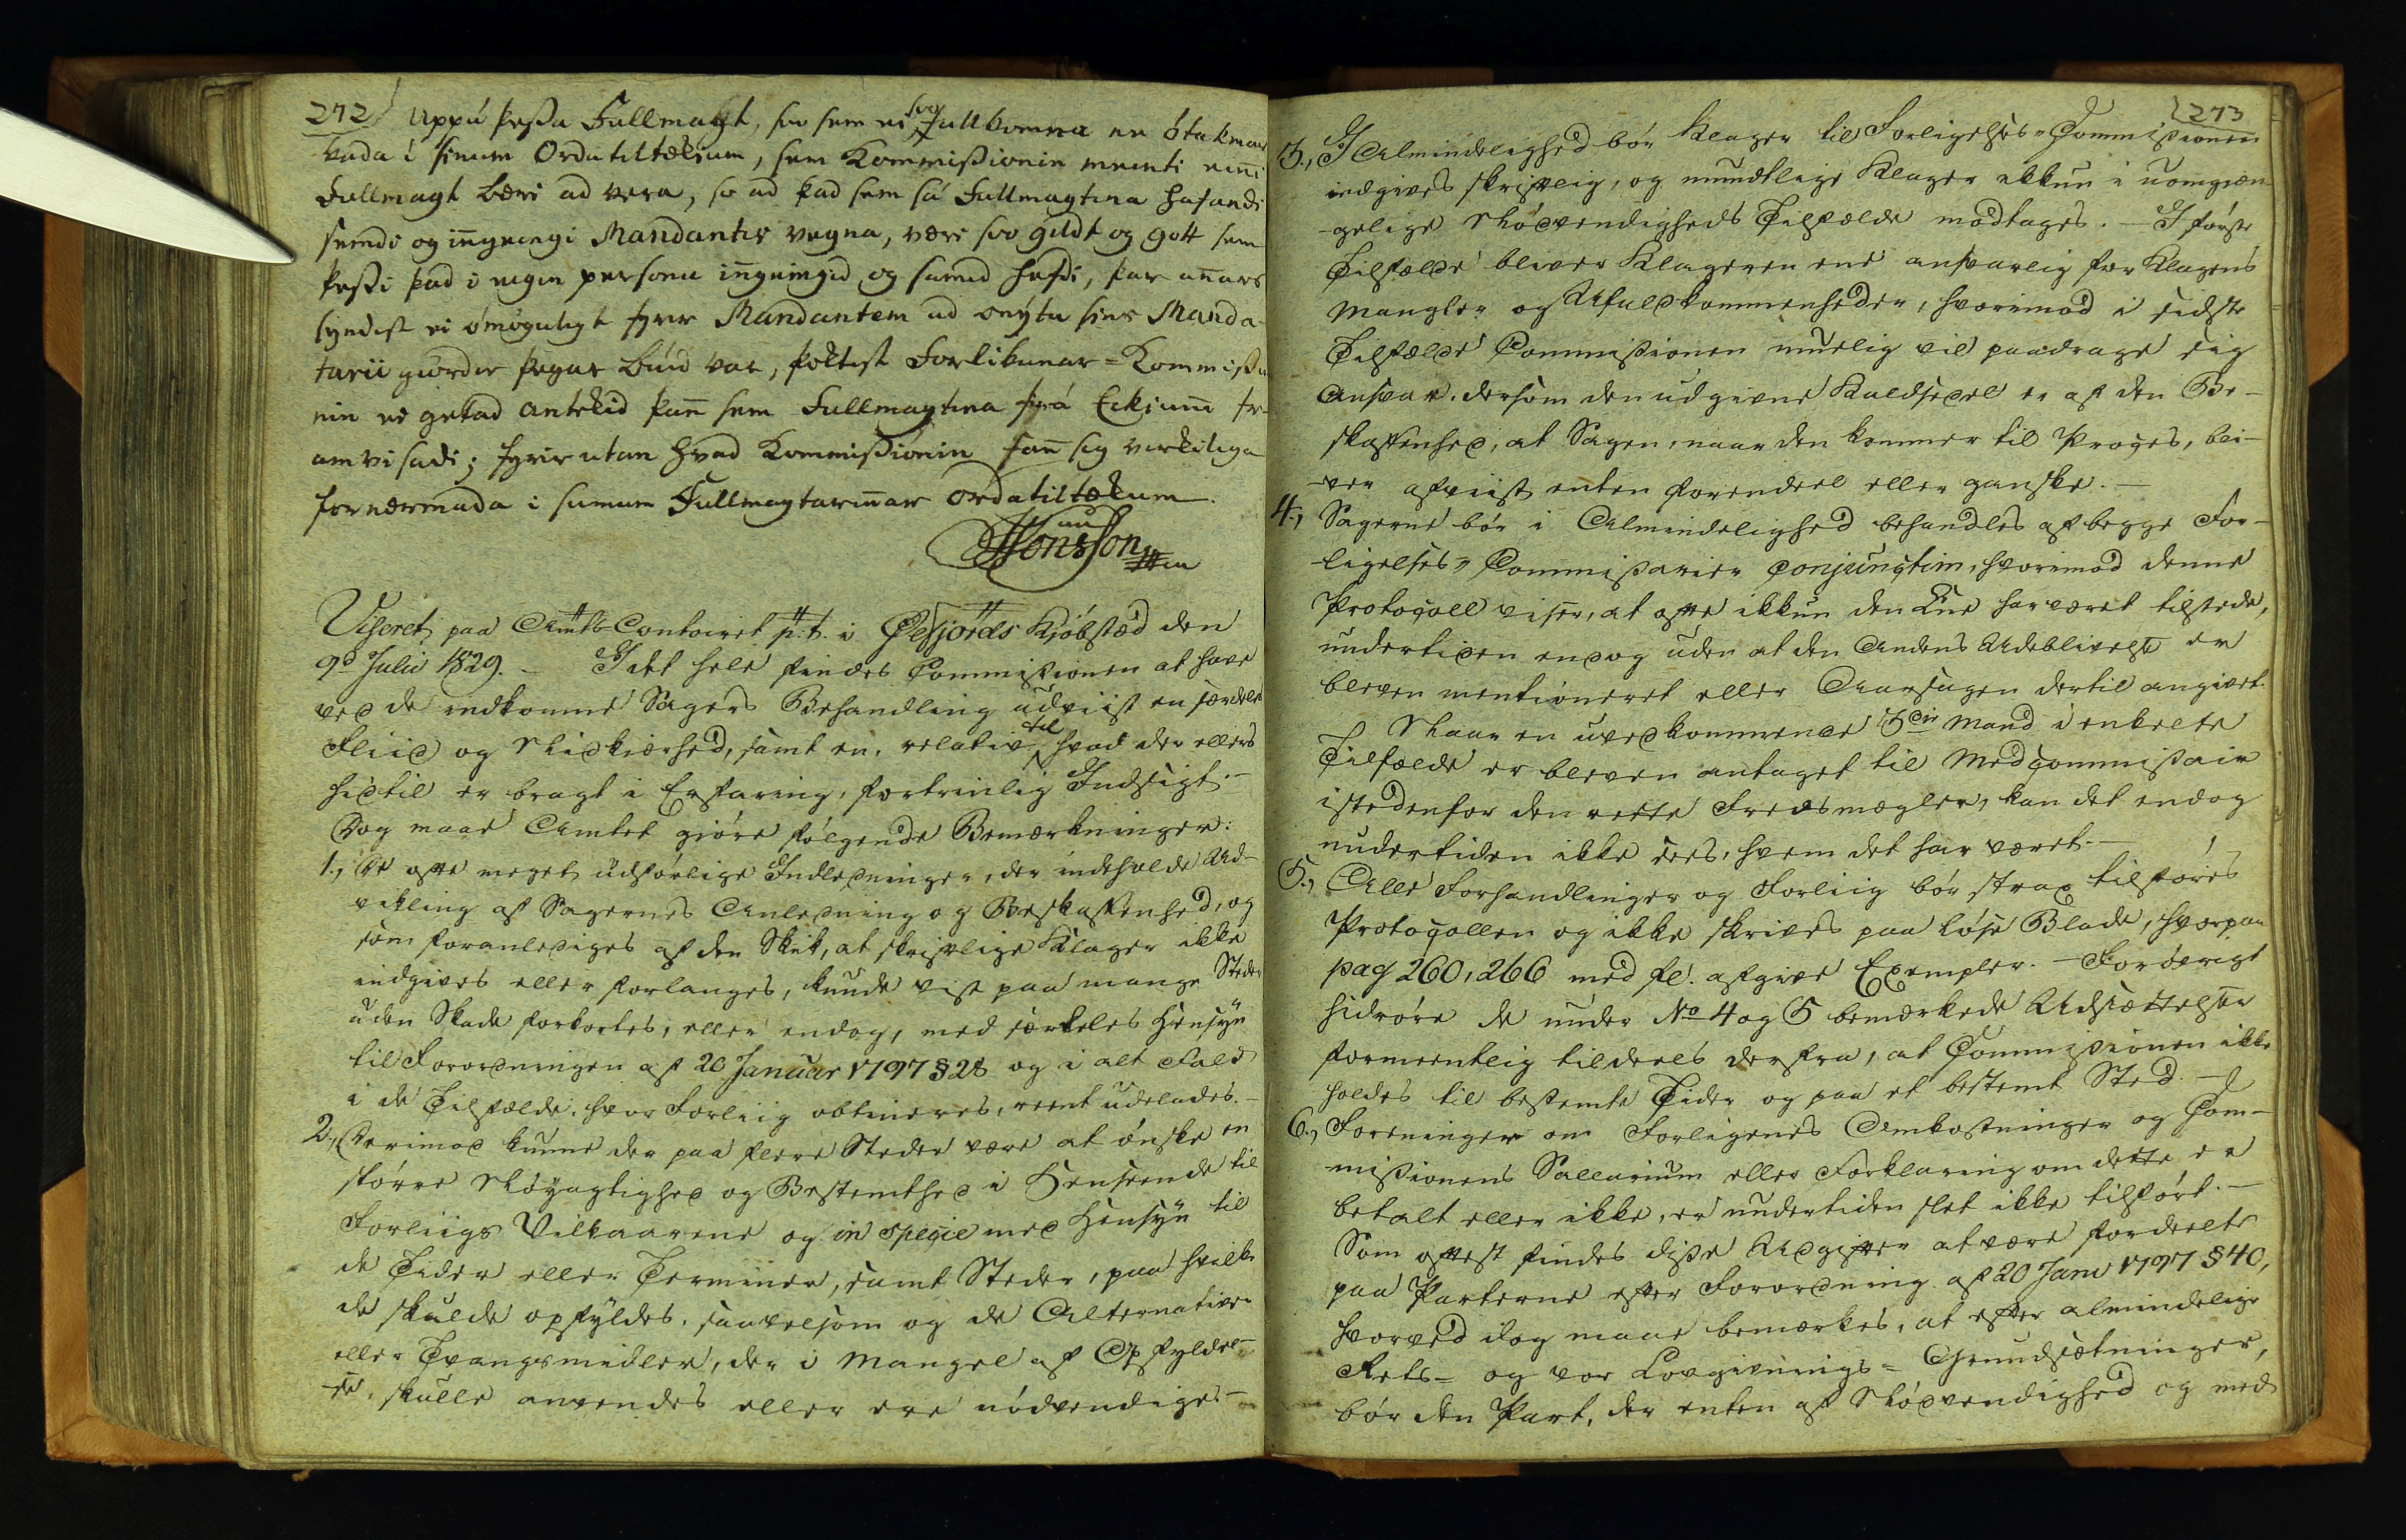 272
Uppá þessa Fullmagt, svo sem ei svo fullkomna en ótakmar
kada í sinum Ordatiltækium, sem Kommissionin meinti ein̄i
Fullmagt bæri ad vera, so ad þad sem sá Fullmagtina hafandi
semdi og in̄geingi Mandantis vegna, væri svo gildt og gott sem
þessi þad i eigin persónu in̄geingid og samid hefdi, þar an̄ars
syndist ei ómögulegt fyrir Mandantem ad onýta sins Manda-
tarii giördir þegar búid var, þoktist Forlikunar-Kommissio
nin ei getad antekid þan̄ sem Fullmagtina frá Eckjun̄i fr-
amvisadi; fyrir utan hvad Kommissiónin fan̄ sig virkiliga
fornærmada i sumum Fullmagtarin̄ar ordatiltækum.
Jonsson
Viseret paa Amts-Contoiret p.t. i Eefjords Kjöbstæd den
9d Julii 1829. — I det hele findes Commissionen at have
ved de indkomne Sagers Behandling udviist en særdeles
Fliid og Nidkiærhed, samt en, relativ til hvad der ellers
hidtil er bragt i Erfaring, fortrinlig Indsigt. —
Dog maae Amtet giöre fölgende Bemærkninger:
1., De ofte meget udförlige Indledninger, der indeholde Ud-
vikling af Sagernes Anledning og Beskaffenhed, og
som foranlediges af den Skik, at skriftlige Klager ikke
indgives eller forlanges, kunde vist paa mange Steder
uden Skade forkortes, eller endog, med særdeles Hensyn
til Forordningen af 20 Januar 1797 § 28 og i alt Fald
i de Tilfælde, hvor Forliig obtineres, reent udelades. —
2., Derimod kunne der paa flere Steder være at önske en
större Nöyagtighed og Bestemthed i Henseende til
Forliigs Vilkaarene og in specie med Hensyn til
de Tider eller Terminer, samt Steder, paa hvilke
de skulde opfyldes, saavelsom og de Alternativer
eller Tvangsmidler, der i Mangel af Opfyldel-
se, skulle anvendes eller ere nödvendige. —
273
3., I Almindelighed bör Klager til Forligelses-Commissionen
indgives skriftlig, og mundtlige Klager ikkun i uomgæn-
gelige Nödvendigheds Tilfælde modtages. — I förste
Tilfælde bliver Klageren ene ansvarlig for Klagens
Mangler og Ufuldkommenheder, hvorimod i sidste
Tilfælde Commissionen muelig vil paadrage sig
Ansvar, dersom den udgivne Kaldseddel er af den Be-
skaffenhed, at Sagen, naar den kommer til Proces, bli-
ver afviist enten forendeel eller ganske. —
4., Sagerne bör i Almindelighed behandles af begge For-
ligelses-Commissairer conjunctim, hvorimod denne
Protocoll viser, at ofte ikkun den Ene har været tilstede,
undertiden endog uden at den Andens Udeblivelse er
bleven mentioneret eller Aarsagen dertil angivet.
Naar en uvedkommende 3die Mand i enkelte
Tilfælde er bleven antaget til Medcommissair
istedenfor den rette Fredsmægler, kan det endog
undertiden ikke sees, hvem det har været. —
5., Alle Forhandlinger og Forliig bör strax tilföres
Protocollen og ikke skrives paa löse Blade, hvorpaa
pag 260, 266 med fl. afgive Exempler. — Forövrigt
hidröre de under No 4 og 5 bemærkede Udsættelser
formeentlig tildeels derfra, at Commissionen ikke
holdes til bestemte Tider og paa et bestemt Sted. —
6., Foreninger om Forligenes Omkostninger og Com-
missionens Sallarium eller Forklaring om dette er
betalt eller ikke, er undertiden slet ikke tilfört. —
Som oftest findes disse Udgifter at være fordeelte
paa Parterne efter Forordning af 20 Janv 1797 § 40,
hvorved dog maae bemærkes, at efter almindelige
Rets- og vor Lovgivnings-Grundsætninger,
bör den Part, der enten af Nödvendighed og med